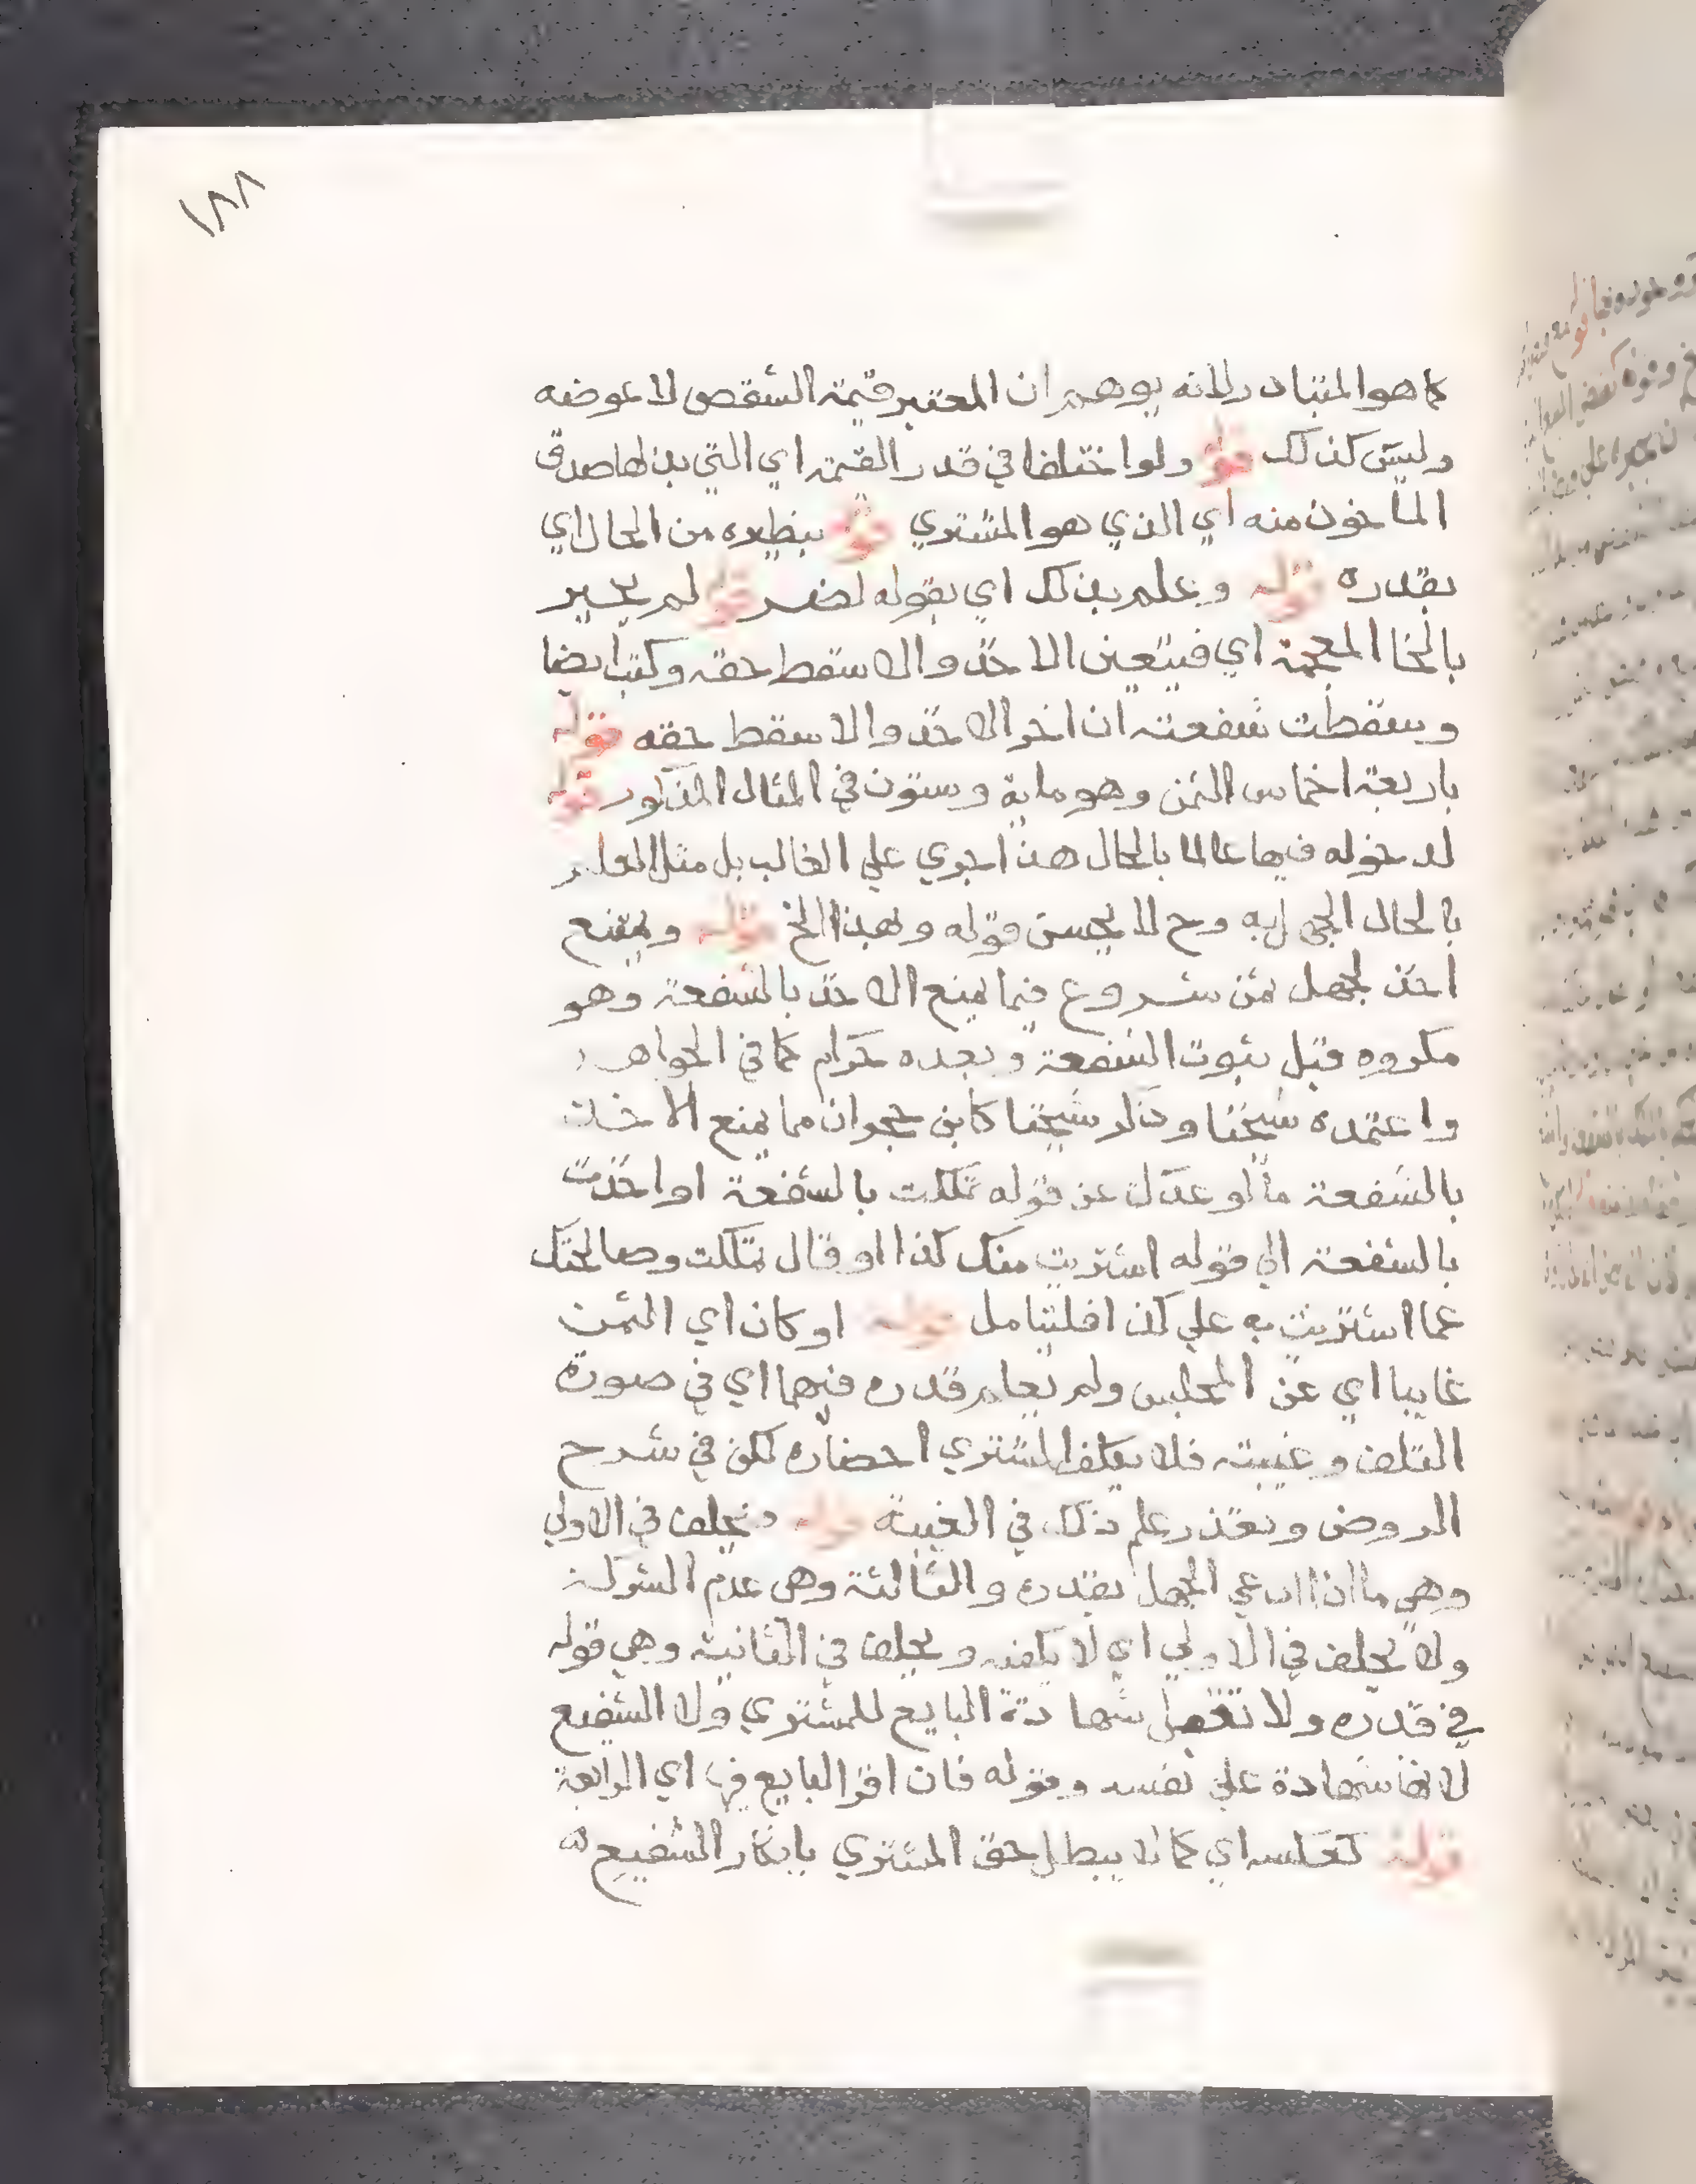 ١٨٨
كما هو المتبادر لانه يوهم ان المعتبر قيمة الشقص لا عوضه
وليس كذلك قوله ولو اختلفا في قدر القيمة اي التي بذلها صدق
الماخوذ منه اي الذي هو المشتري قوله بنظيره من الحال اي
بقدره قوله وعلم بذلك اي بقوله لضرر قوله لم يخير
بالخا المعجمة اي فيتعين الاخذ والا سقط حقه وكتب ايضا
وسقطت شفعته ان اخر الاخذ والا سقط حقه قوله
باربعة اخماس الثمن وهو ماية وستون في المثال المذكور قوله
لدخوله فيها عالما بالحال هذا جري علي الغالب بل مثل العلم
بالحال الجهل به وح لا يحسن قوله وبهذا الخ قوله ويمتنع
اخذ لجهل ثمن شروع فيما يمنع الاخذ بالشفعة وهو
مكروه قبل ثبوت الشفعة وبعده حرام كما في الجواهر
واعتمده شيخنا وذكر شيخنا كابن حجر ان مما يمنع الاخذ
بالشفعة ما لو عدل عن قوله تملكت بالشفعة او اخذت
بالشفعة الي قوله اشتريت منك كذا او قال تملكت وصالحتك
عما اشتريت به علي كذا فليتامل قوله او كان اي الثمن
غايبا اي عن المجلس ولم يعلم قدره فيهما اي في صورة
التلف وغيبته فلا يكلف المشتري احضاره لكن في شرح
الروض وتعذر علم ذلك في الغيبة قوله ويحلف في الاولي
وهي ما اذا ادعي الجهل بقدره والثالثة وهي عدم الشركة
ولا يحلف في الاولي اي لا يكفيه ويحلف في الثانية وهي قوله
في قدره ولا تقبل شهادة البايع للمشتري ولا الشفيع
لانها شهادة علي نفسه وقوله فان اقر البايع فيها اي الرابعة
قوله كعكسه اي كما لا يبطل حق المشتري بانكار الشفيع له